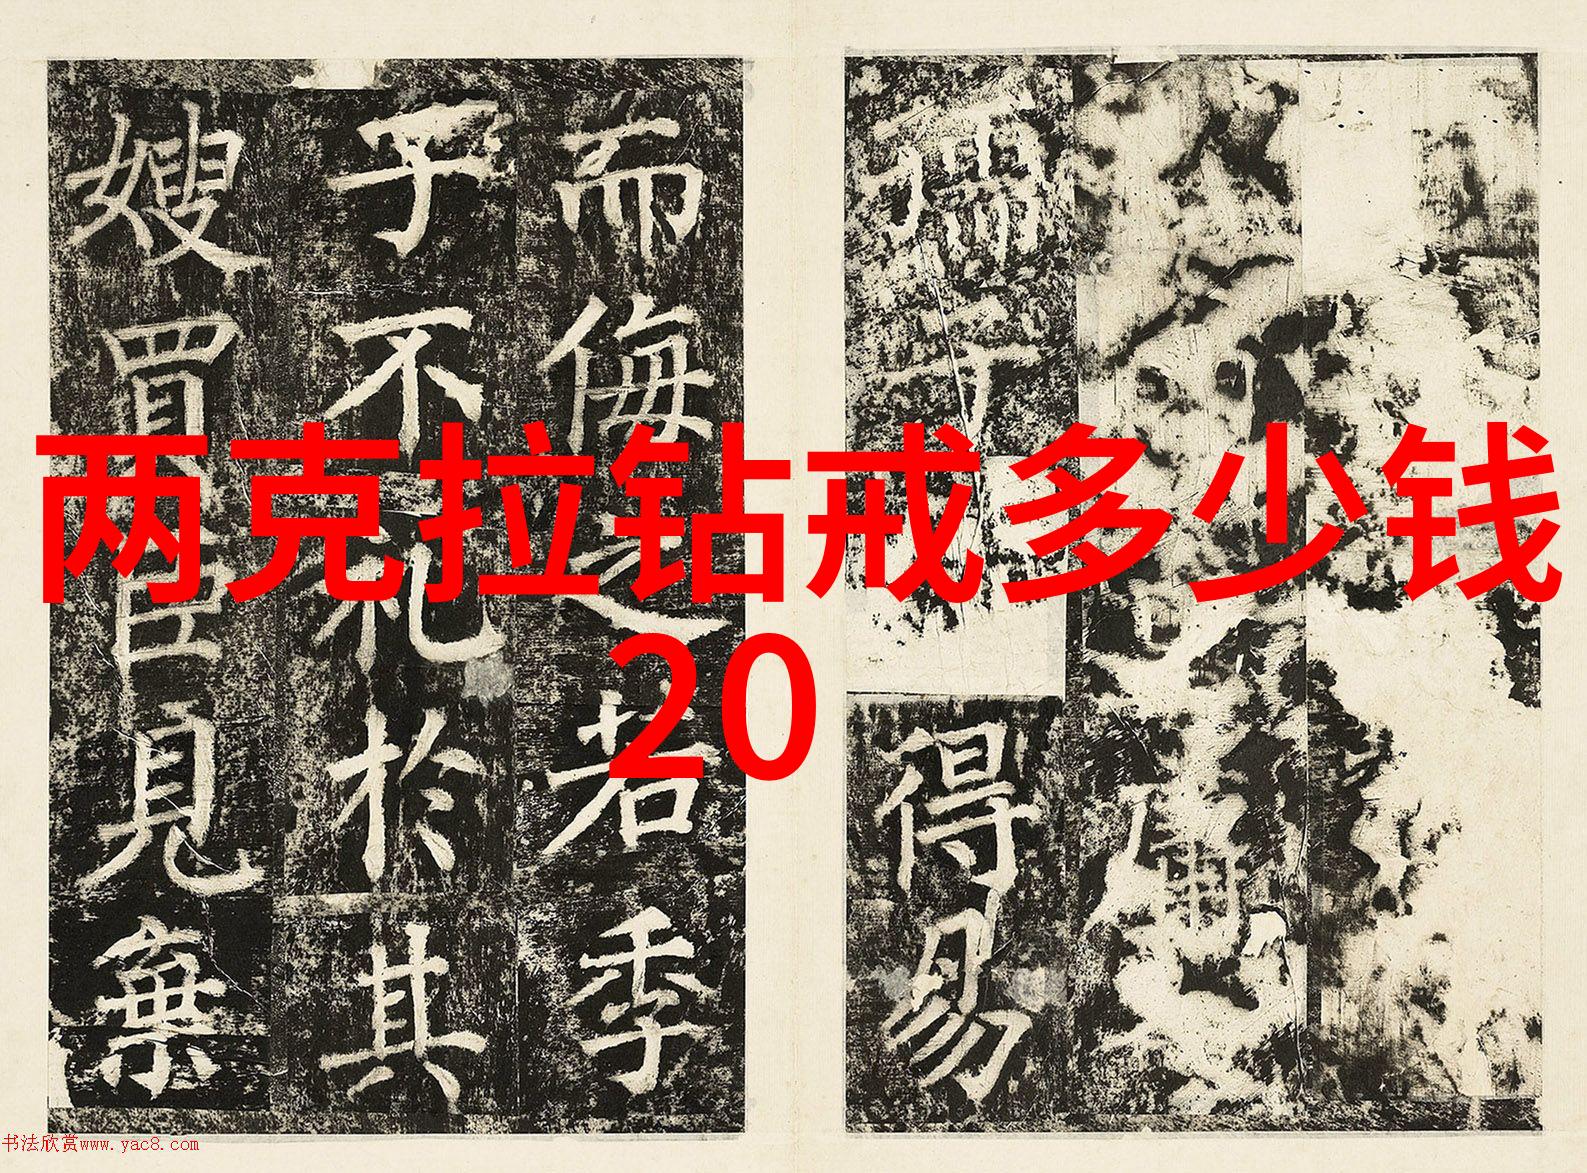 两克拉钻戒多少钱
20
而侮之若季
子不礼於其
嫂買臣見棄
得易
书法欣赏www.yac8.com